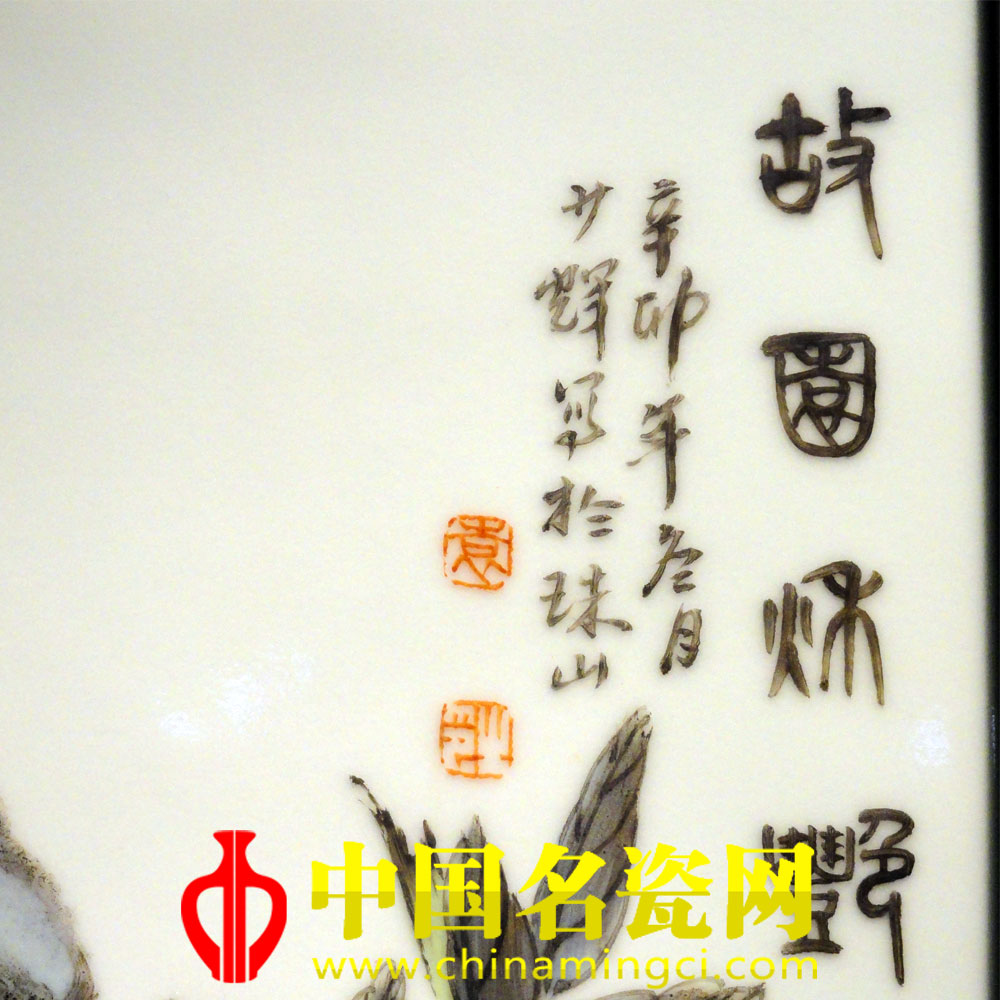 故園秌豔
辛卯年冬月
少輝写於珠山
中国名瓷网
www.chinamingci.com